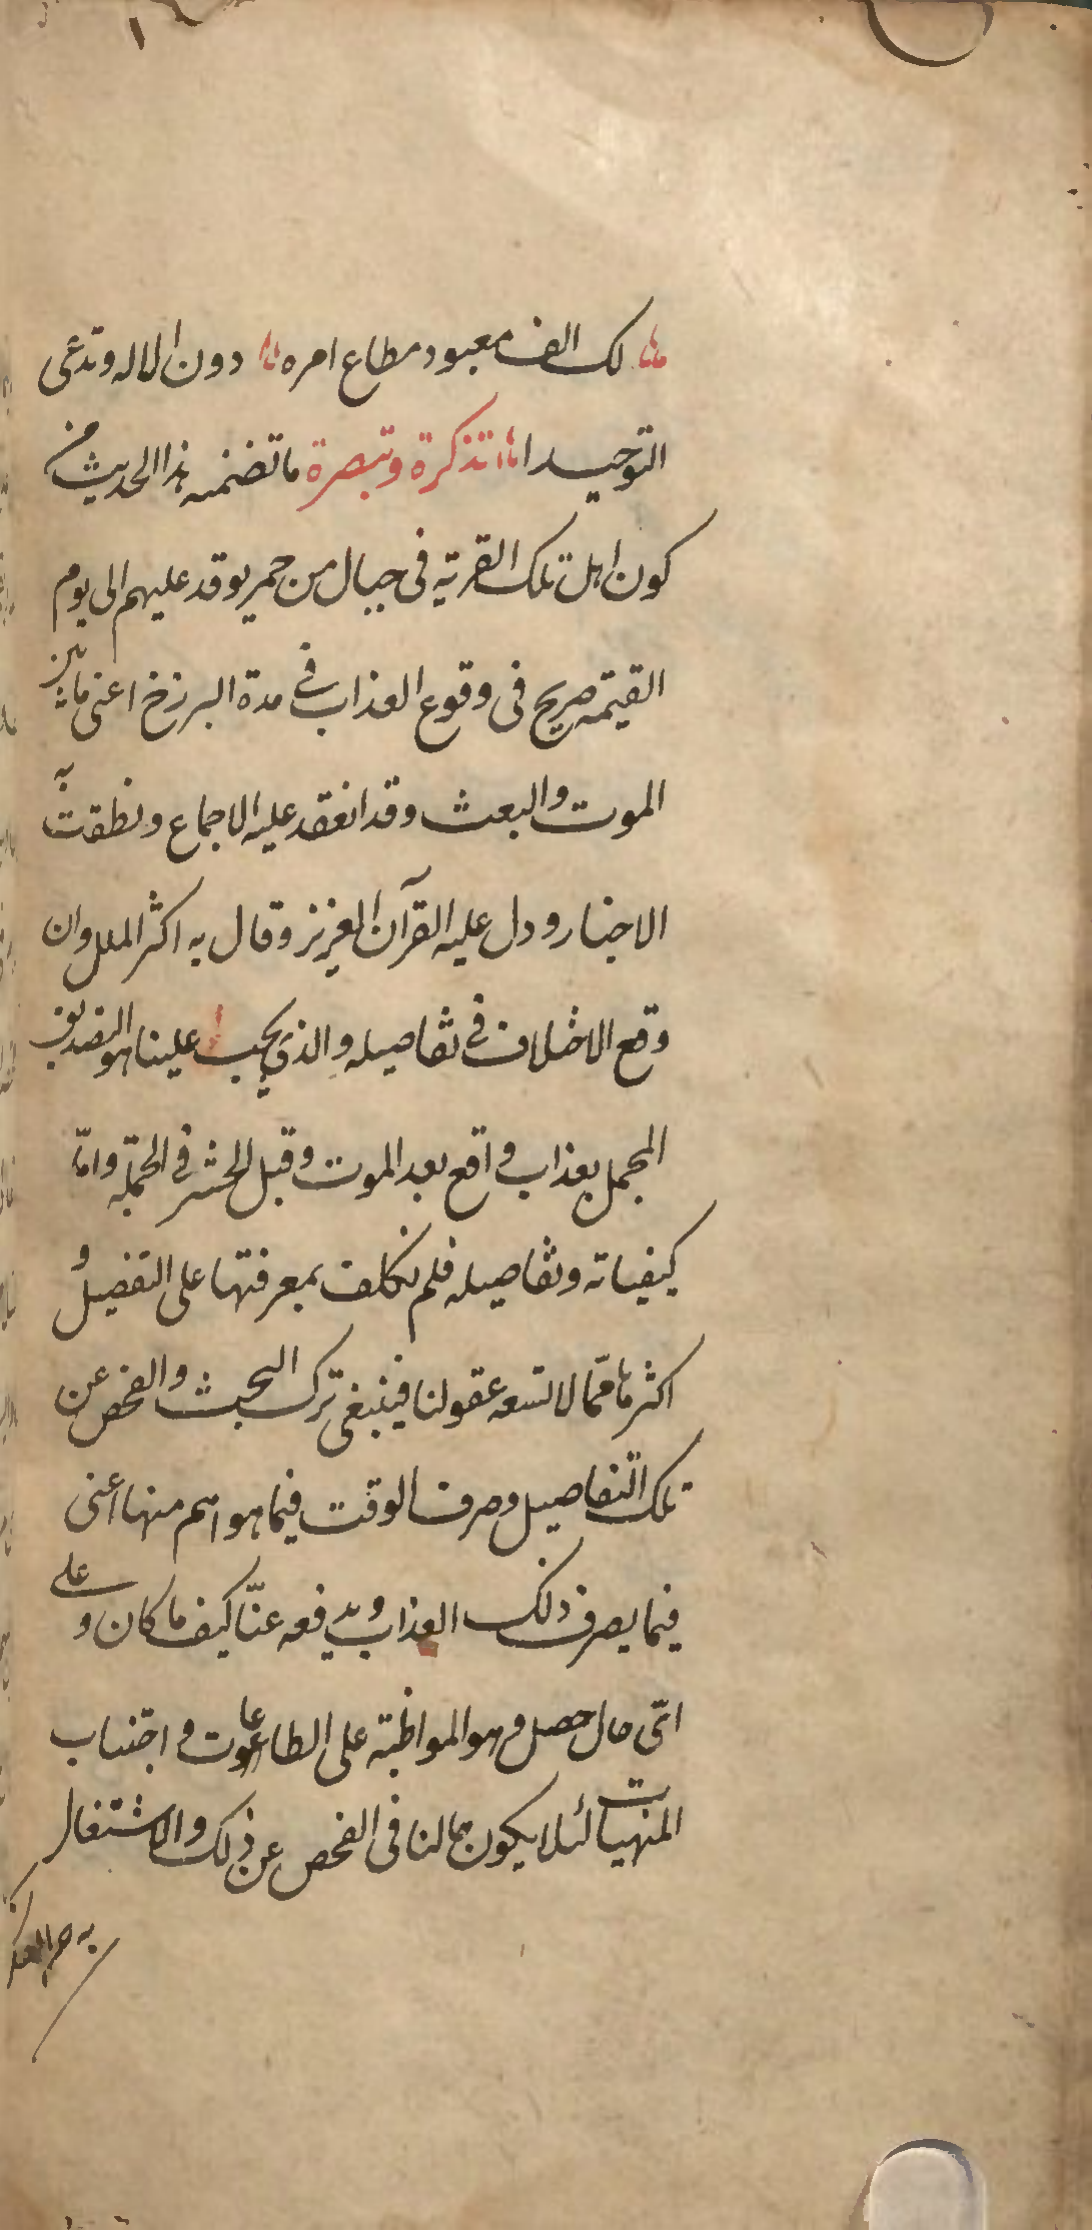 لك الف معبود مطاع امره دون الاله وتدعى
التوحيدا تذكرة وتبصرة ما تضمنه هذا الحديث من
كون اهل تلك القرية فى جبال من جمر يوقد عليهم الى يوم
القيمة صريح فى وقوع العذاب فى مدة البرزخ اعنى ما بين
الموت والبعث وقد انعقد عليه الاجماع ونطقت به
الاخبار ودل عليه القرآن العزيز وقال به اكثر الملل وان
وقع الاختلاف فى تفاصيله والذى يجب علينا هو التصديق
المجمل بعذاب واقع بعد الموت وقبل الحشر فى الجملة وامّا
كيفياته وتفاصيله فلم نكلف بمعرفتها على التفصيل و
اكثرها ممّا لا تسعه عقولنا فينبغى ترك البحث والفحص عن
تلك التفاصيل وصرف الوقت فيما هو اهم منها اعنى
فيما يصرف ذلك العذاب ويدفعه عنّا كيف ما كان و على
اىّ حال حصل وهو المواظبة على الطاعات و اجتناب
المنهيات لئلا يكون حالنا فى الفحص عن ذلك والاشتغال
به عن